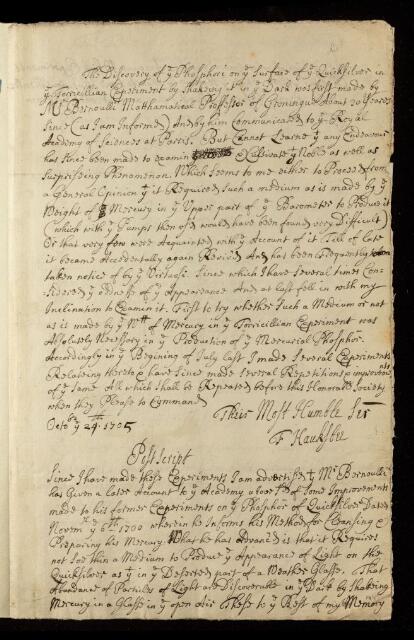 The Discovery of yᵉ Phosphori on yᵉ Surface of yᵉ Quicksilver in
yᵉ Torricellian Experiment by Shakeing it in yᵉ Dark was first made by
Mʳ Bernoulli Mathamatical Proffesor of Groninque About 20 Yeares
Since (as I am Informed) And by him Communicated to yᵉ Royal
Academy of Sciences at Paris. But Cannot Learne yᵗ any Endeavour
has since been made to examin Cultivate yᵗ Noble as well as
Surprising Phenomenon. Which seems to me either to Proceed from
a General Opinion yᵗ it Required Such a medium as is made by yᵉ
Weight of Mercury in yᵉ Upper part of yᵉ Barometer to Produce it
(which with yᵉ Pumps then used would have been found very Difficult)
Or that very few were Acquainted with yᵉ Account of it. Till of late
it became Accedentally again Revived And has been frequently
taken notice of by yᵉ Virtuosi. Since which I have Several times Con-
sidered yᵉ oddness of yᵉ Appearance And at last fell in with my
Inclination to Examin it. First to try whether Such a Medium or not
as is made by yᵉ Wᵗ of Mercury in yᵉ Torricellian Experiment was
Absolutely Necessary in yᵉ Production of yᵉ Mercurial Phosphor.
Accordingly in yᵉ Begining of July last I made Several Experiments
Relateing thereto & have Since made Several Repetitions & improvemᵗˢ
of yᵉ Same All which shall be Repeated before this Honorable Society
when they Please to Command
Their Most Humble Serᵗ
Octoᵇʳ yᵉ 24ᵗʰ 1705
F Hauksbee
Post Script
Since I have made these Experiments I am advertised yᵗ Mʳ Bernoulli
has Given a later Account to yᵉ Academy of Some Improvements
made to his former Experiments on yᵉ Phosphor of Quicksilver Dated
Novemʳ yᵉ 6ᵗʰ 1700 wherein he Informs his Method for Cleansing &
Preparing his Mercury. What he has Advanced is that it Requires
not Soe thin a Medium to Produce yᵉ Appearance of Light on the
Quicksilver as yᵗ in yᵉ Deserted part of a Weather Glasse. That
Abundance of Particles of Light are Discoverable in yᵉ Dark by Shakeing
Mercury in a Glasse in yᵉ open Air These to yᵉ Best of my Memory